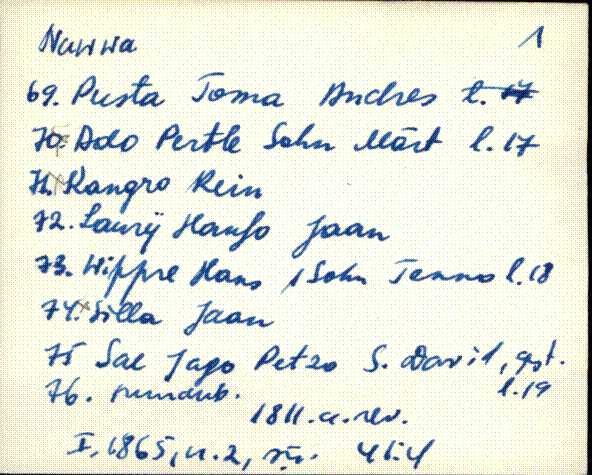 Nawwa 1
69. Pusta Toma Andres l. 17
70. Ado Pertle Sohn Märt l. 17
71. Kangro Rein
72. Saurÿ Hanso Jaan
73. Wippre Hans Sohn Tenno l. 18
74. Silla Jaan
75 Sae Jago Petzo S. David,
l. 19
76.
1811.a.rev.
I, 1865, n. 2,